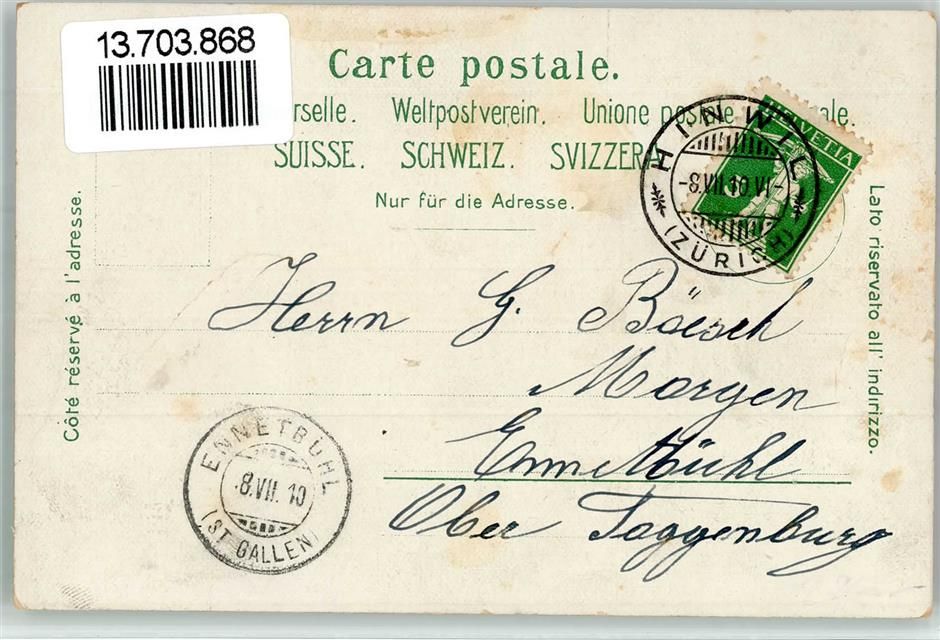 13.703.868
Carte postale.
rselle. Weltpostverein. Unione po ale.
SUISSE. SCHWEIZ. SVIZZERA
Nur für die Adresse.
Côté réservé à l'adresse.
Lato riservato all' indirizzo.
HELVETIA
HINWIL
-8.VII.10.VI-
(ZÜRICH)
Herrn G. Bösch
Morgen
Ennetbühl
Ober Toggenburg
ENNETBÜHL
8.VII.10
(ST. GALLEN)